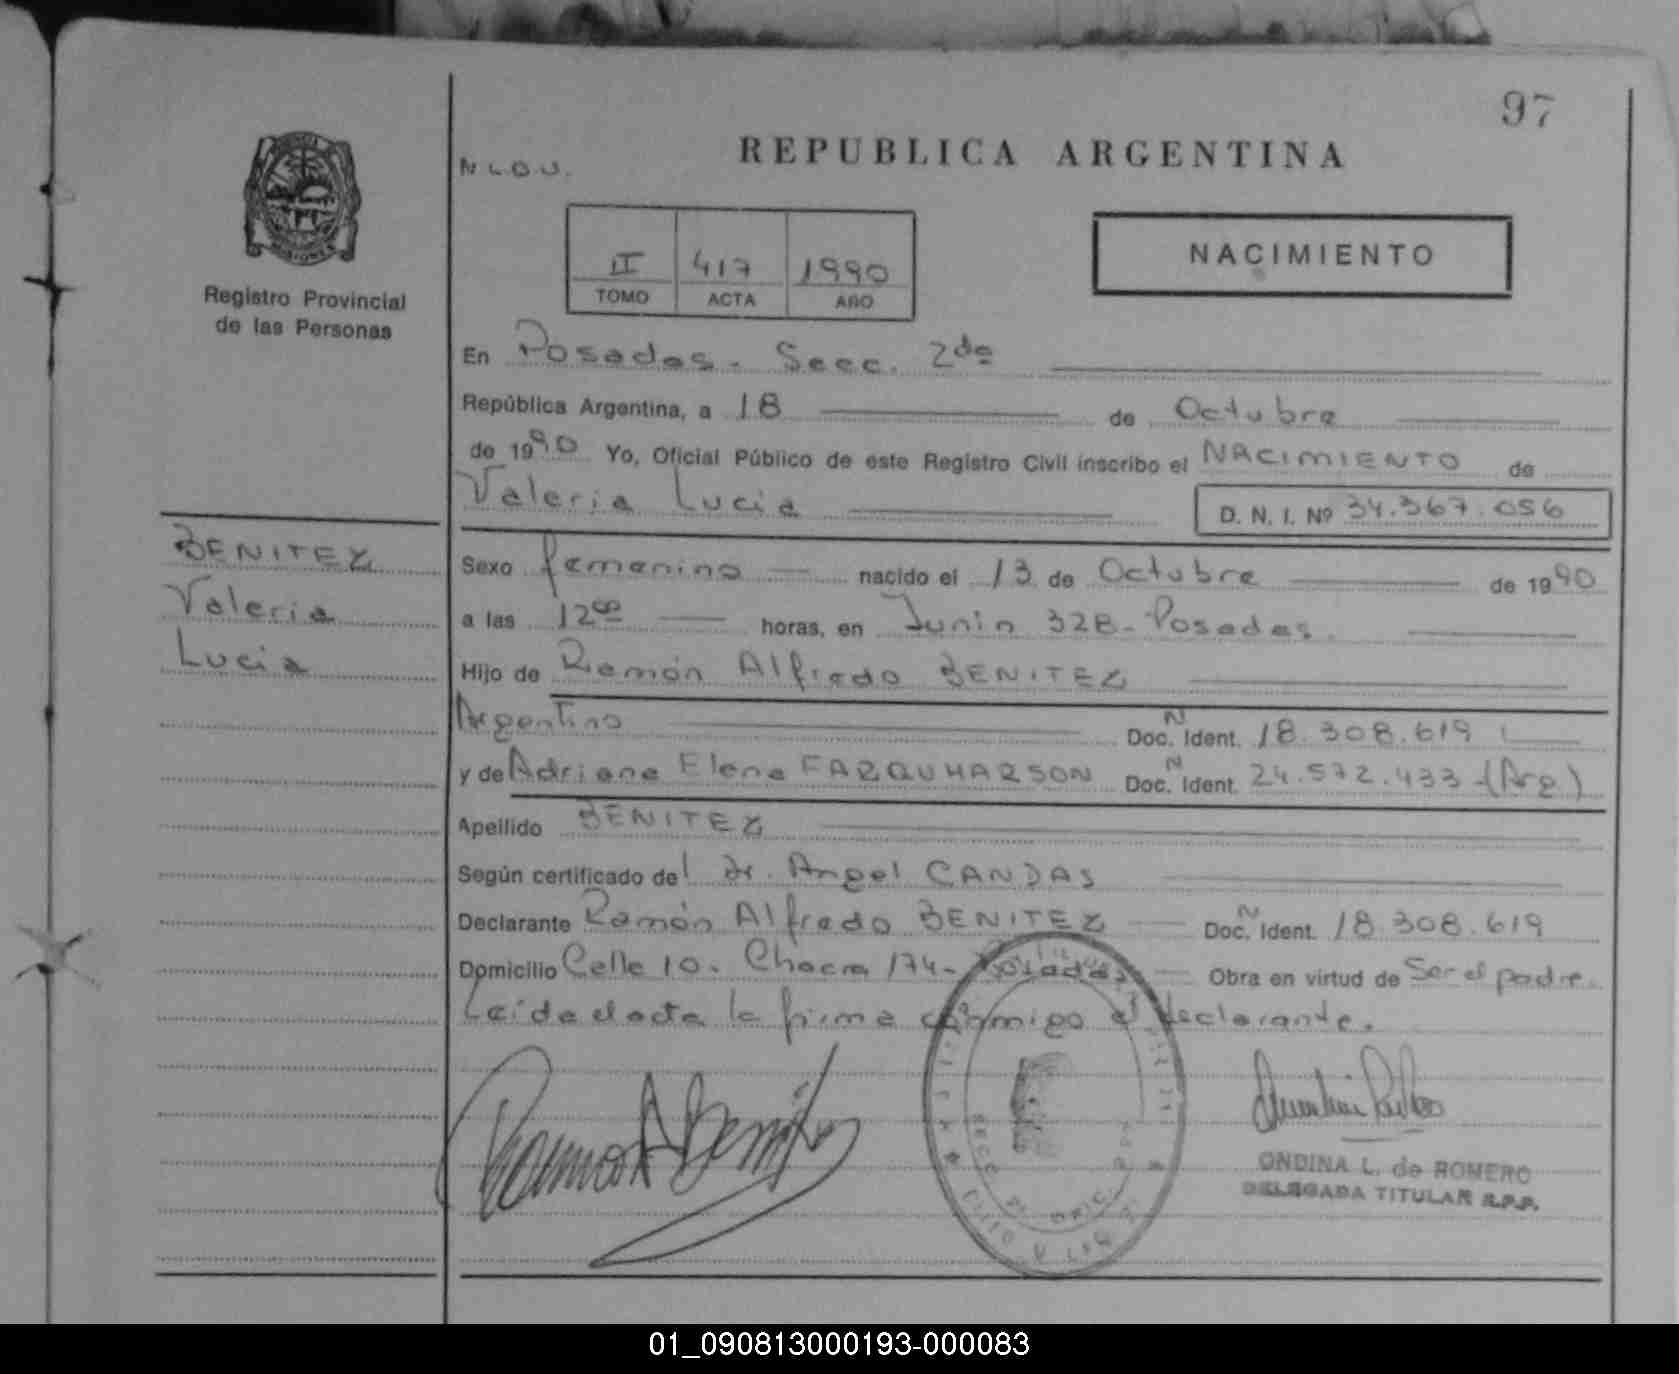 97
REPUBLICA ARGENTINA
N L.O.U.
Registro Provincial
de las Personas
II 417 1990
TOMO ACTA AÑO
NACIMIENTO
En Posadas - Secc. 2da
República Argentina, a 18 de Octubre
de 1990 Yo, Oficial Público de este Registro Civil inscribo el NACIMIENTO de
Valeria Lucia D. N. I. Nº 34.367.056
BENITEZ
Valeria
Lucia
Sexo femenino nacido el 13 de Octubre de 1990
a las 12 horas, en Junin 328 - Posadas.
Hijo de Ramón Alfredo BENITEZ
Argentino Doc. N Ident. 18.308.619
y de Adriana Elena FARQUHARSON Doc. N Ident. 24.572.433 (Arg.)
Apellido BENITEZ
Según certificado del Dr. Angel CANDAS
Declarante Ramón Alfredo BENITEZ Doc. N Ident. 18.308.619
Domicilio Calle 10 - Chacra 174 - Posadas Obra en virtud de Ser el padre.
Leida el acta la firma conmigo el declarante.
Ramon A Benitez
ONDINA L. de ROMERO
DELEGADA TITULAR R.P.P.
01_090813000193-000083